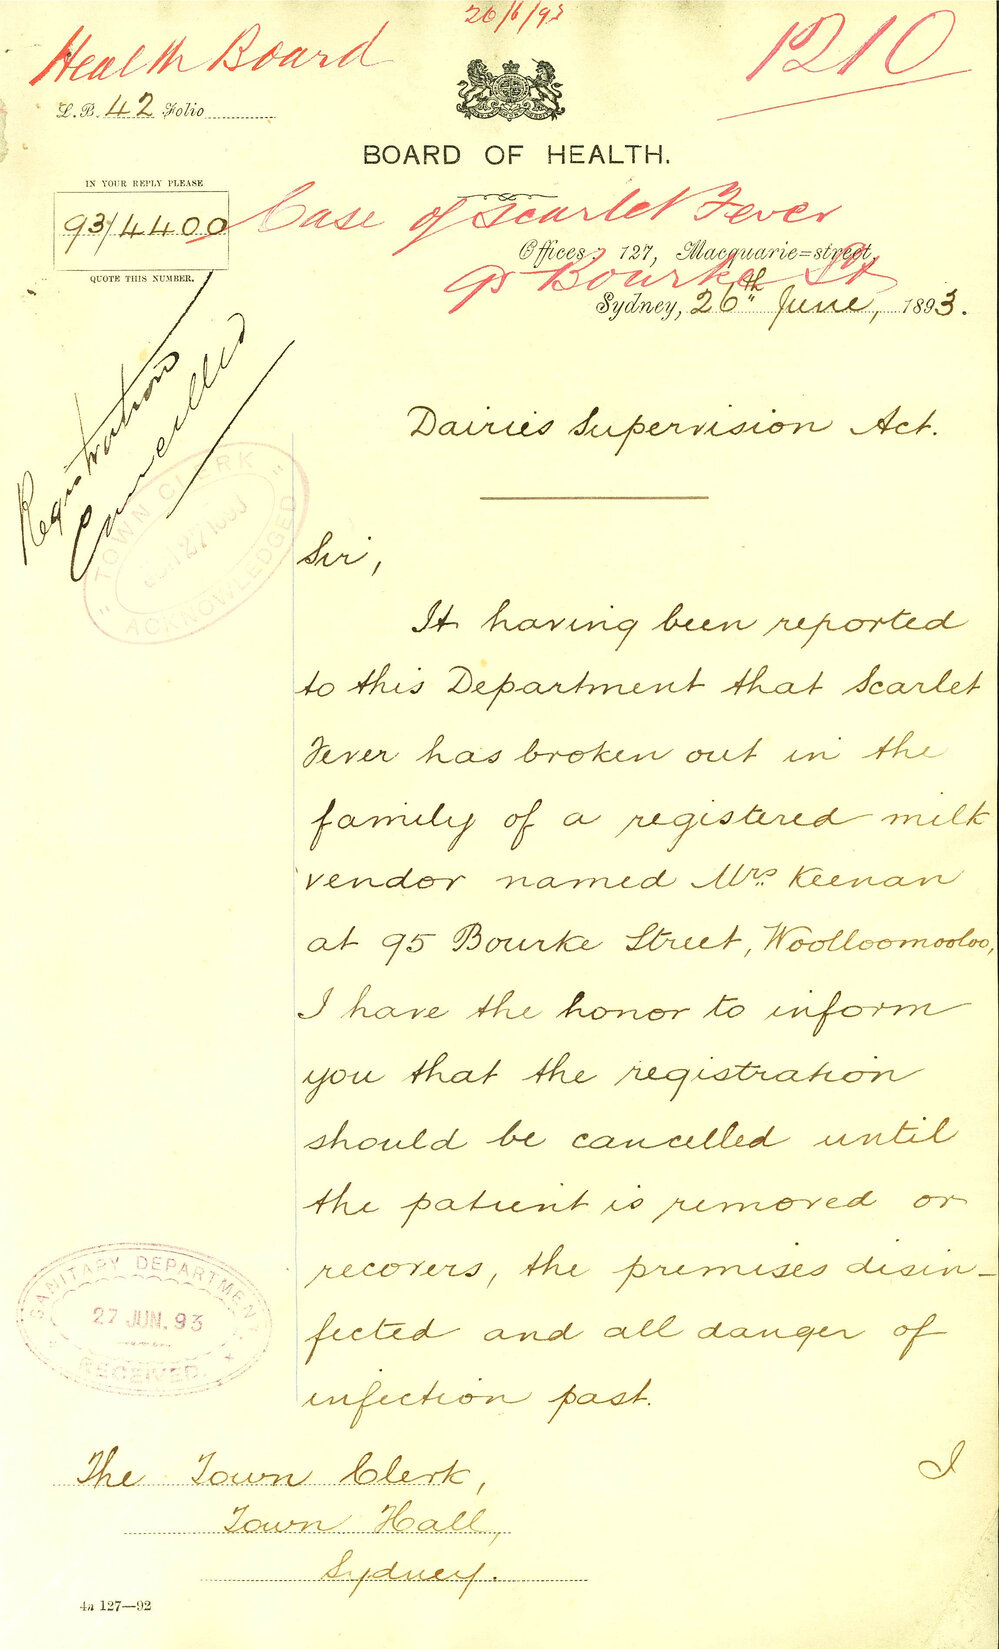 26/6/93
Health Board
1210
L.B. 42 Folio
BOARD OF HEALTH.
IN YOUR REPLY PLEASE
93/4400
QUOTE THIS NUMBER.
Case of Scarlet Fever
Offices: 127, Macquarie=street,
95 Bourke St
Sydney, 26th June, 1893.
Registration
Cancelled
Dairies Supervision Act.
"TOWN CLERK"
ACKNOWLEDGED
Sir,
It having been reported
to this Department that Scarlet
Fever has broken out in the
family of a registered milk
vendor named Mrs Keenan
at 95 Bourke Street, Woolloomooloo,
I have the honor to inform
you that the registration
should be cancelled until
the patient is removed or
recovers, the premises disin-
fected and all danger of
infection past.
SANITARY DEPARTMENT
27 JUN. 93
RECEIVED.
I
The Town Clerk,
Town Hall,
Sydney.
4a 127—92